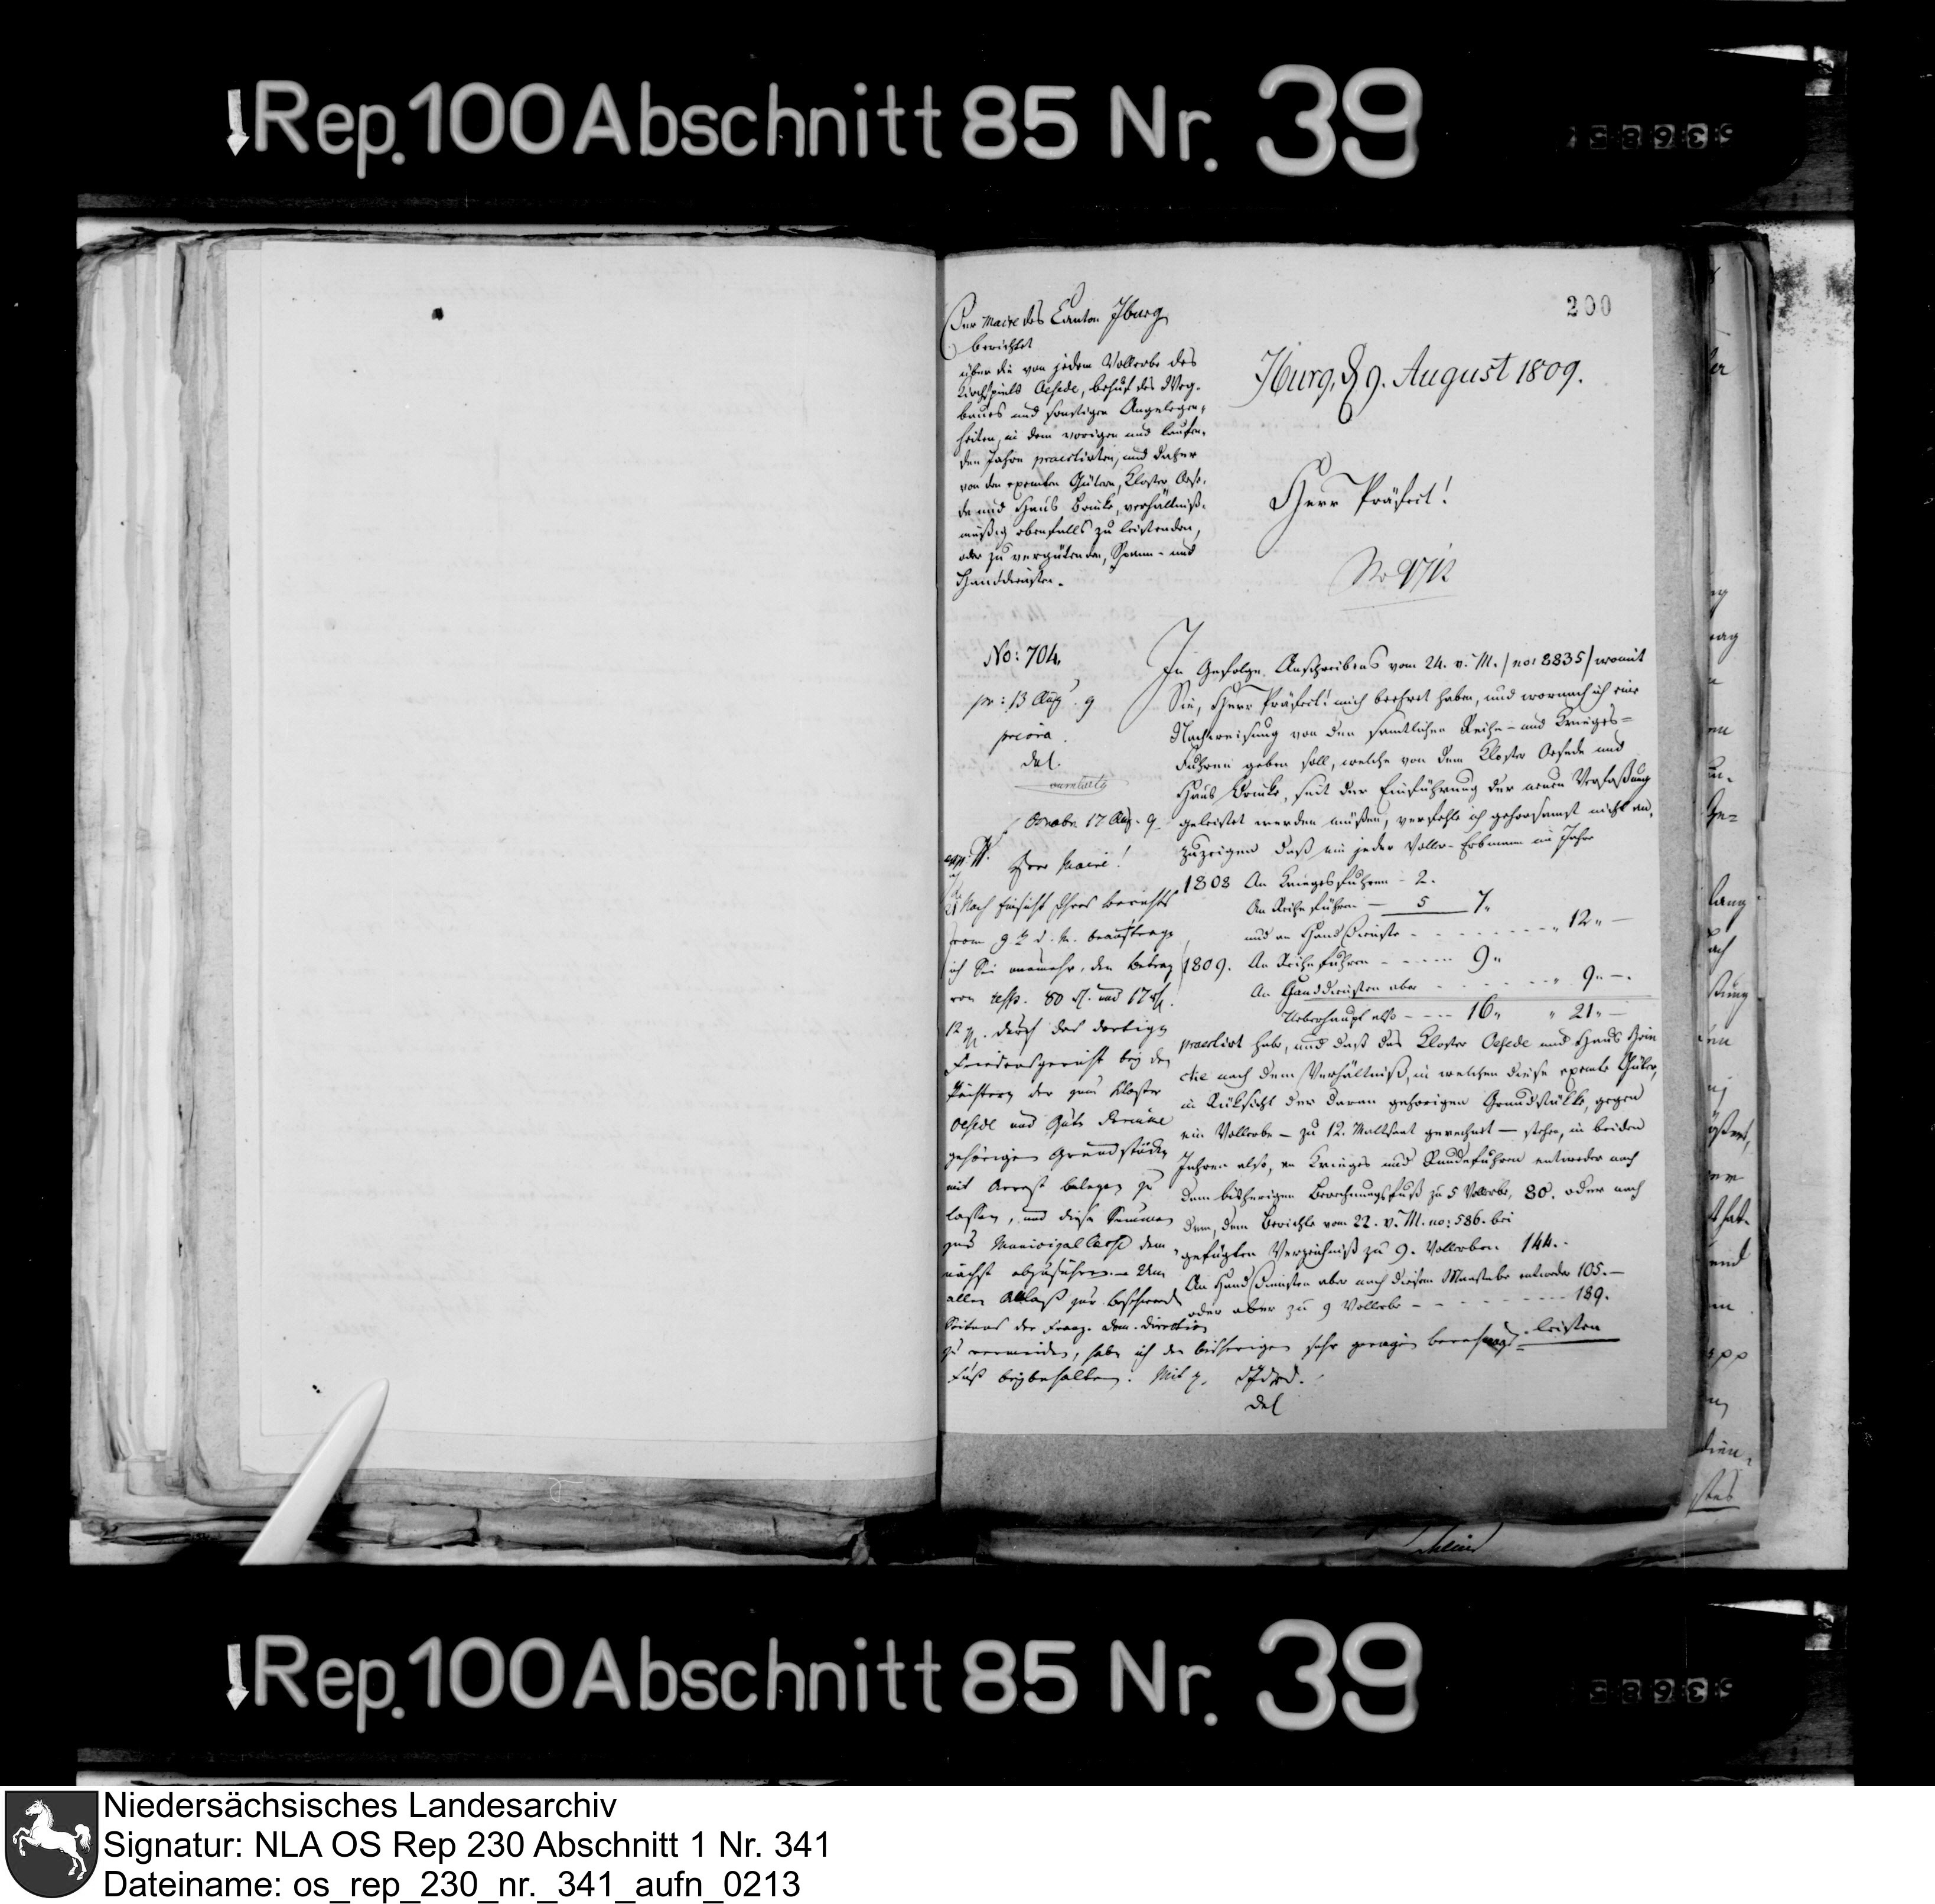 Rep. 100 Abschnitt 85 Nr. 39
200
Der Maire des Canton Iburg
berichtet
über die von jedem Vollerbe des
Kirchspiels Oesede, behuf des Weg-
baues und sonstigen Angelegen-
heiten, in dem vorigen und laufen-
den Jahre praestirten, und daher
von den exemten Gütern, Kloster Oese-
de und Haus Brinke, verhältniß-
mäßig ebenfalls zu leistenden,
oder zu vergütenden, Spann- und
Handdiensten.
Iburg, d 9. August 1809.
Herr Präfect!
No: 704.
pr: 13 Aug. 9
priora
del.
Osnabr. 17 Aug. 9
Herr Maire!
Nach Einsicht Ihres Berichts
vom 9. d. M. beauftrage
ich Sie nunmehr, den Betrag
von resp. 80 und 17
12 durch das dortige
Friedensgericht bey den
Pächtern der zum Kloster
Oesede und Gute Brincke
gehörigen Grundstücke
mit Arrest belegen zu
lassen, und diese Summen
zur Municipal Casse dem
nächst abzuführen. – Um
allen Anlaß zur Beschwerde
Seitens der Franz. Dom. Direction
zu vermeiden, habe ich den bisherigen sehr geringen berechnungs-
Fuß beybehalten. Mit p.
del
In Gefolge Anschreibens vom 24. v. M. / no: 8835 / womit
Sie, Herr Präfect! mich beehret haben, und wornach ich eine
Nachweisung von den samtlichen Reihe- und Krieges-
Fuhren geben soll, welche von dem Kloster Oesede und
Haus Brinke, seit der Einführung der neuen Verfaßung
geleistet werden müßen, verfehle ich gehorsamst nicht an-
zuzeigen daß ein jeder Voller-Erbmann im Jahre
1808 An Kriegesfuhren - 2.
An Reihefuhren — 5 7 "
und an Handdienste - - - - - " 12 " —
1809. An Reihefuhren - - - - 9 "
An Handdiensten aber - - - - - " 9 " —
Ueberhaupt also - - - 16 " " 21 " —
praestirt habe, und daß das Kloster Oesede und Haus Brin
cke nach dem Verhältniß, in welchen diese exemte Güter,
in Rüksicht der daran gehörigen Grundstükke, gegen
ein Vollerbe – zu 12. Maltsaat gerechnet – stehen, in beiden
Jahren also, an Krieges und Runde fuhren entweder nach
dem bisherigen Berechnungsfuß zu 5 Vollerbe, 80. oder nach
dem, dem Berichte vom 22. v. M. no: 586. bei
gefügten Verzeichniß zu 9. Vollerben 144.
An Handdiensten aber nach diesem Maastabe entweder 105. —
oder aber zu 9 Vollerbe - - - - - 189.
leisten
Rep. 100 Abschnitt 85 Nr. 39
Niedersächsisches Landesarchiv
Signatur: NLA OS Rep 230 Abschnitt 1 Nr. 341
Dateiname: os_rep_230_nr._341_aufn_0213